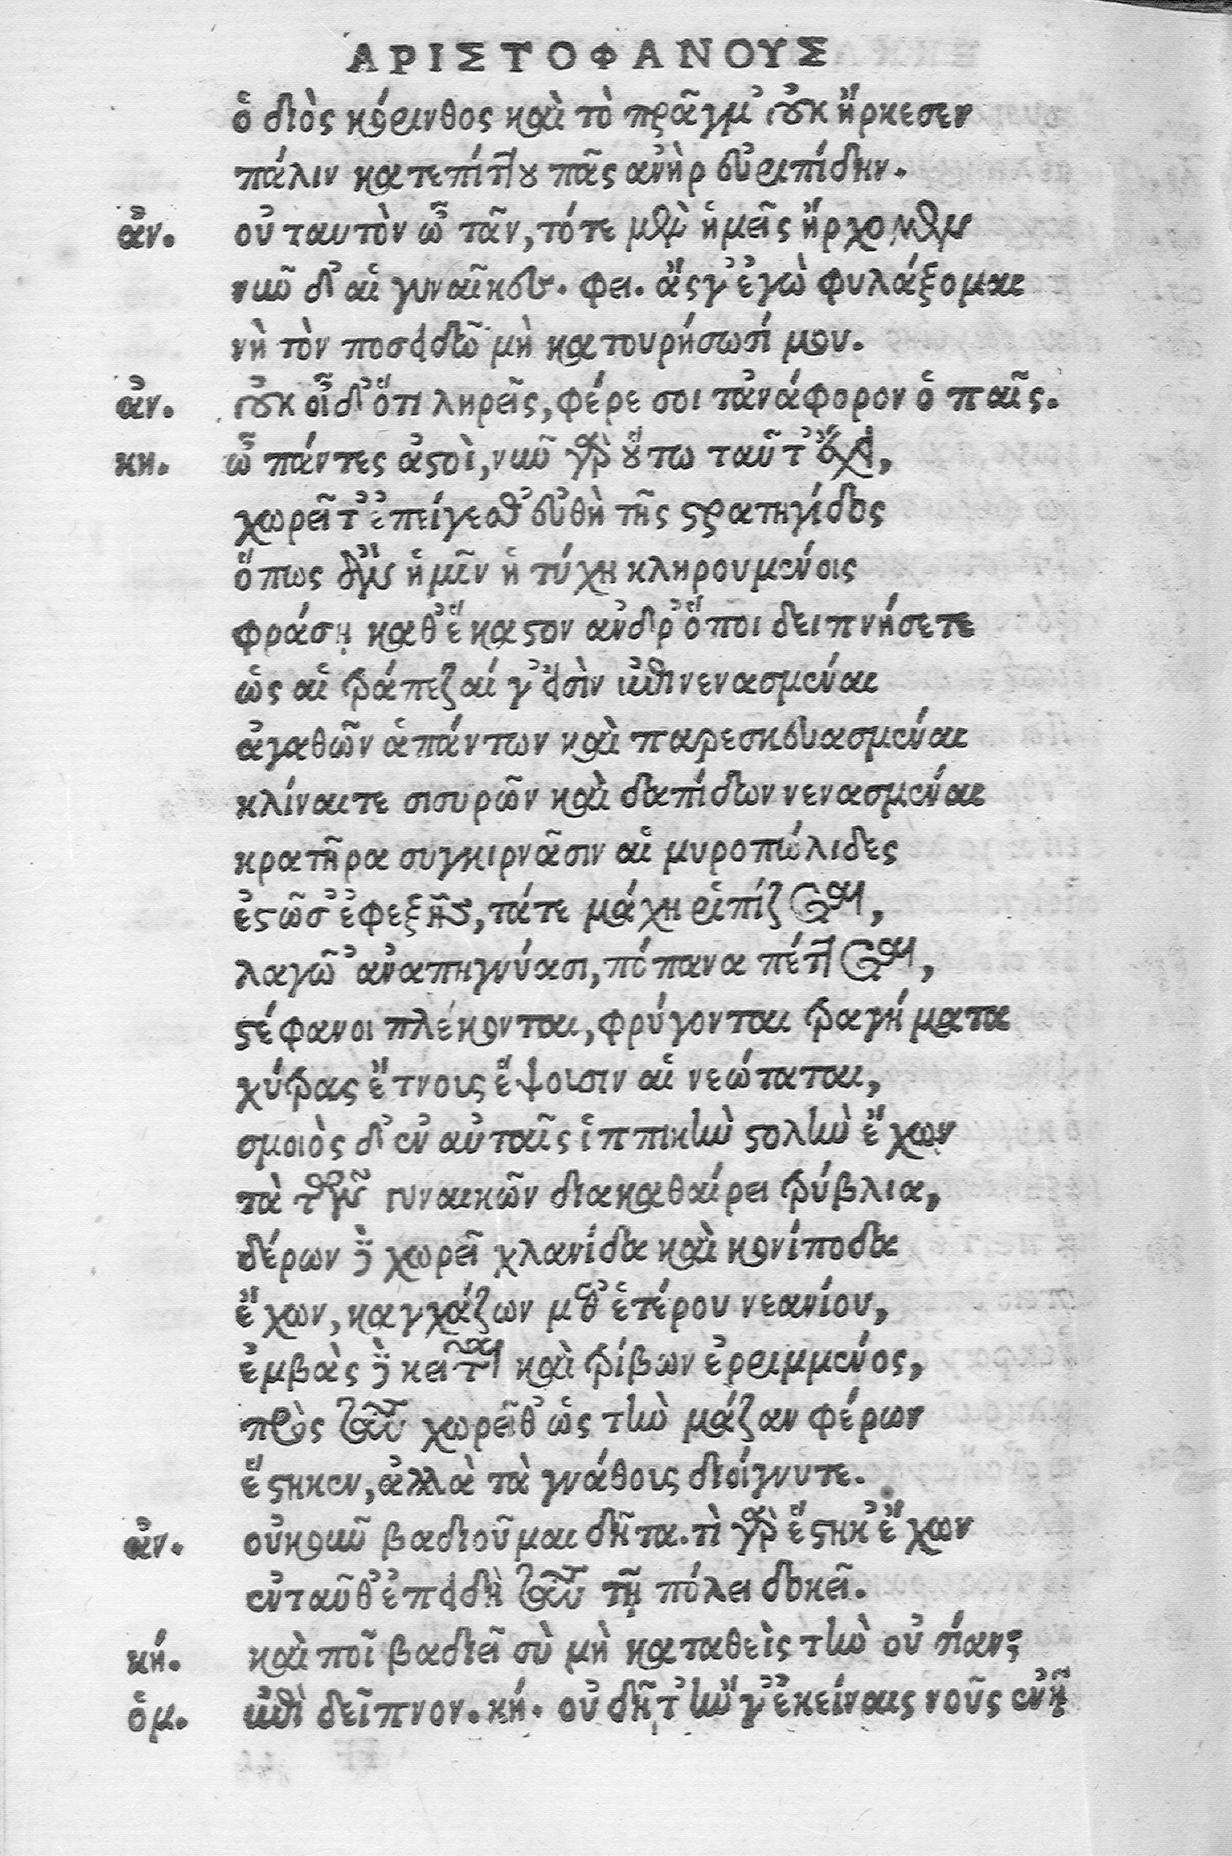 ΑΡΙΣΤΟΦΑΝΟΥΣ
ὁ διὸς κόρινθος καὶ τὸ πρᾶγμ’ οὐκ ἤρκεσεν
πάλιν κατεπίττου πᾶς ἀνὴρ εὐριπίδην.
ἀν. οὐ ταυτὸν ὦ τᾶν, τότε μὲν ἡμεῖς ἤρχομεν
νῦν δ’ αἱ γυναῖκες. φει. ἅς γ’ ἐγὼ φυλάξομαι
νὴ τὸν ποσειδῶ μὴ κατουρήσωσί μου.
ἀν. οὐκ οἶδ’ ὅτι ληρεῖς, φέρε σοι τἀνάφορον ὁ παῖς.
κη. ὦ πάντες ἀστοὶ, νῦν γὰρ οὕτω ταῦτ’ ἔχει,
χωρεῖτ’ ἐπείγεσθ’ εὐθὴ τῆς στρατηγίδος
ὅπως ἂν ἡμῖν ἡ τύχη κληρουμένοις
φράσῃ καθ’ ἕκαστον ἄνδρ’ ὅποι δειπνήσετε
ὡς αἱ τράπεζαί γ’ εἰσὶν ἐπινενασμέναι
ἀγαθῶν ἁπάντων καὶ παρεσκευασμέναι
κλίναι τε σισυρῶν καὶ δαπίδων νενασμέναι
κρατῆρα συγκιρνᾶσιν αἱ μυροπώλιδες
ἑστῶσ’ ἐφεξῆς, τάτε μάχη ῥιπίζεται,
λαγῶ’ ἀναπηγνύασι, πόπανα πέττεται,
στέφανοι πλέκονται, φρύγονται τραγήματα
χύτρας ἔτνους ἕψουσιν αἱ νεώταται,
σμοιὸς δ’ ἐν αὐταῖς ἱππικὴν στολὴν ἔχων
τὰ τῶν γυναικῶν διακαθαίρει τρύβλια,
δέρων δὲ χωρεῖ χλανίδα καὶ κονίποδα
ἔχων, καγχάζων μεθ’ ἑτέρου νεανίου,
ἐμβὰς δὲ κεῖται καὶ τρίβων ἐρριμμένος,
πρὸς ταῦτα χωρεῖθ’ ὡς τὴν μάζαν φέρων
ἕστηκεν, ἀλλὰ τὰ γνάθους διοίγνυτε.
ἀν. οὐκοῦν βαδιοῦμαι δῆτα. τὶ γὰρ ἕστηκ’ ἔχων
ἐνταῦθ’ ἐπειδὴ ταῦτα τῇ πόλει δοκεῖ.
κή. καὶ ποῖ βαδιεῖ σὺ μὴ καταθεὶς τὴν οὐσίαν;
ὁμ. ἐπὶ δεῖπνον. κή. οὐ δῆτ’ ἢν γ’ ἐκείναις νοῦς ἐνῇ